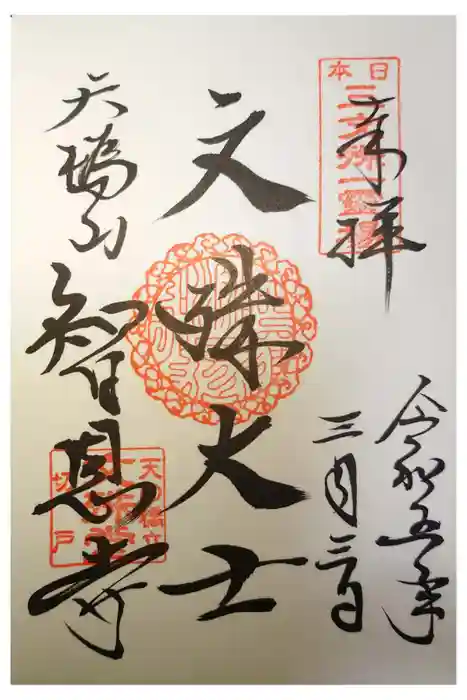 奉拝
日本三文殊一霊場
令和五年
三月三日
文殊大士
天橋山
智恩寺
天の橋立
切戸